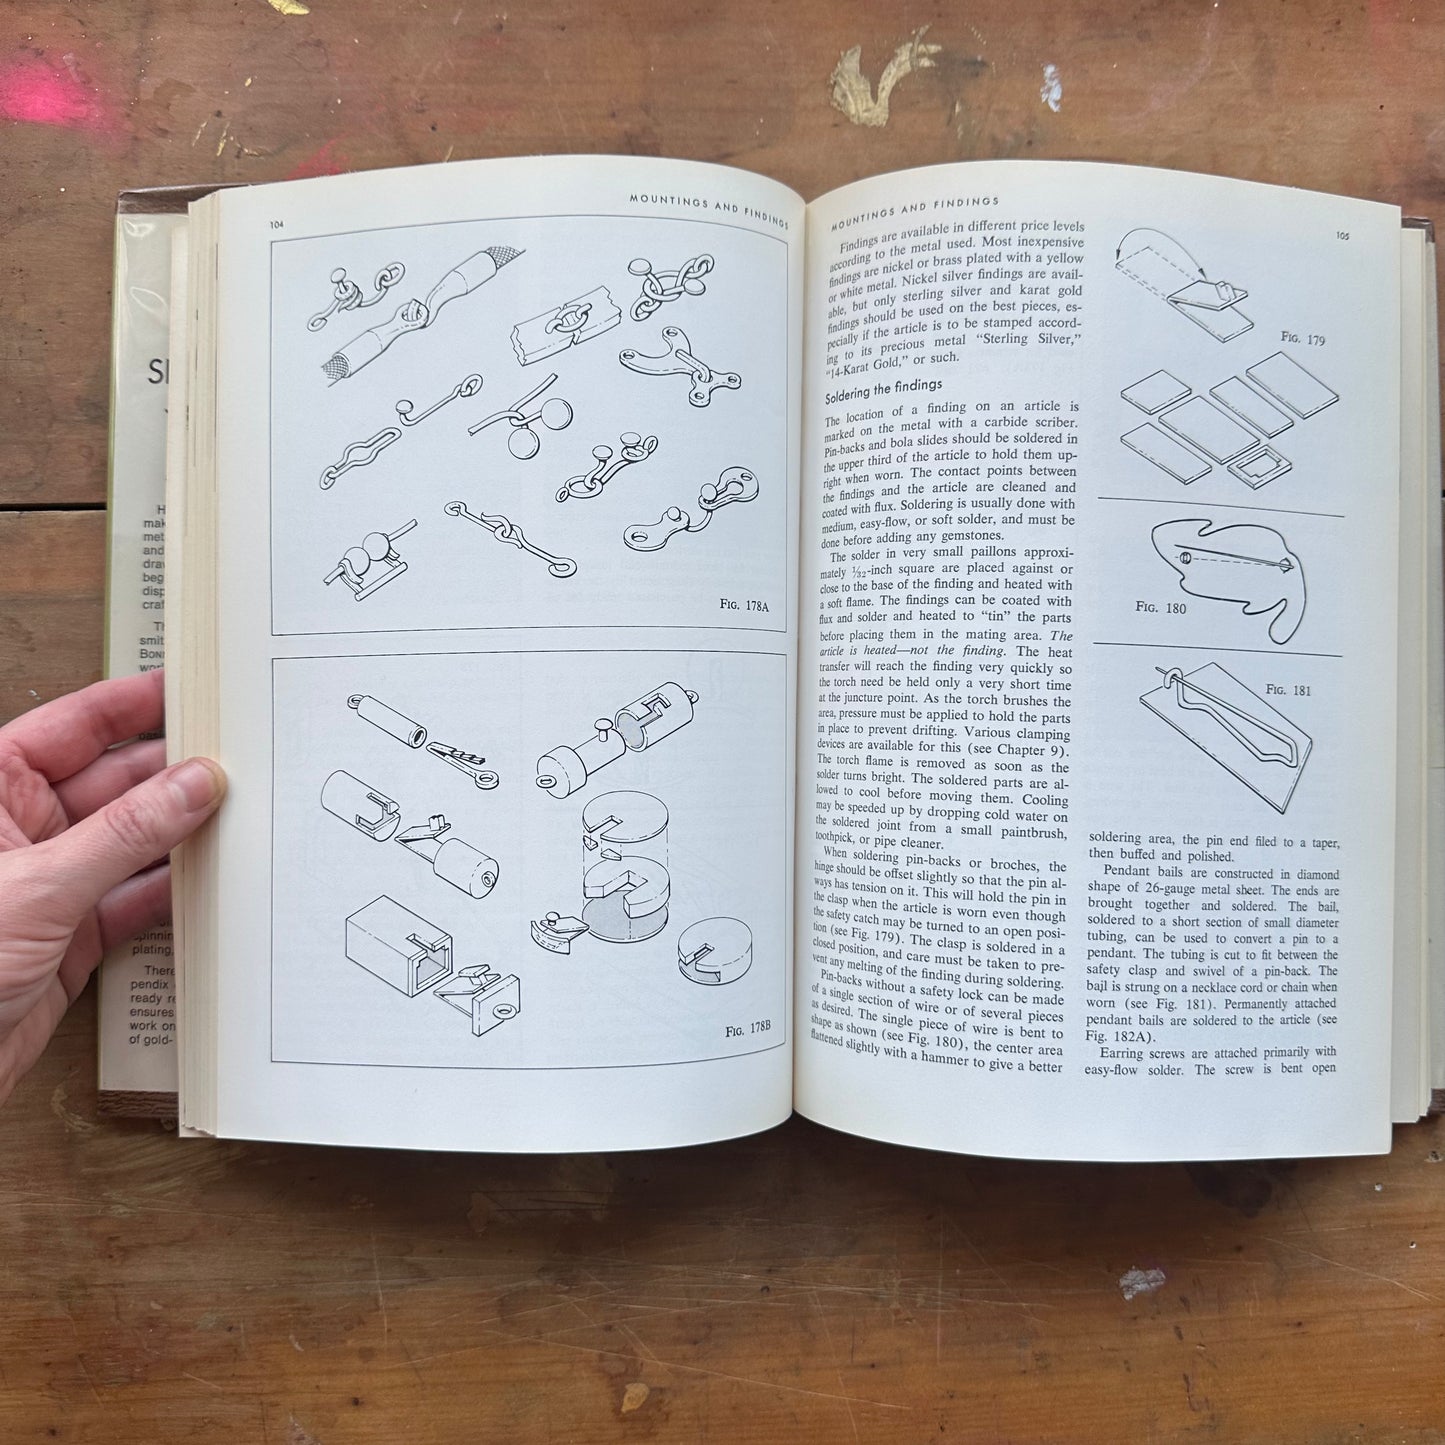 SI
H
mak
met
and
draw
beg
disp
craf
Th
smit
BONN
work
spinnin
plating,
There
pendix
ready re
ensures
work on
of gold-
104
MOUNTINGS AND FINDINGS
FIG. 178A
FIG. 178B
MOUNTINGS AND FINDINGS
105
Findings are available in different price levels
according to the metal used. Most inexpensive
findings are nickel or brass plated with a yellow
or white metal. Nickel silver findings are avail-
able, but only sterling silver and karat gold
findings should be used on the best pieces, es-
pecially if the article is to be stamped accord-
ing to its precious metal “Sterling Silver,”
“14-Karat Gold,” or such.
Soldering the findings
The location of a finding on an article is
marked on the metal with a carbide scriber.
Pin-backs and bola slides should be soldered in
the upper third of the article to hold them up-
right when worn. The contact points between
the findings and the article are cleaned and
coated with flux. Soldering is usually done with
medium, easy-flow, or soft solder, and must be
done before adding any gemstones.
The solder in very small paillons approxi-
mately 1/32-inch square are placed against or
close to the base of the finding and heated with
a soft flame. The findings can be coated with
flux and solder and heated to “tin” the parts
before placing them in the mating area. The
article is heated—not the finding. The heat
transfer will reach the finding very quickly so
the torch need be held only a very short time
at the juncture point. As the torch brushes the
area, pressure must be applied to hold the parts
in place to prevent drifting. Various clamping
devices are available for this (see Chapter 9).
The torch flame is removed as soon as the
solder turns bright. The soldered parts are al-
lowed to cool before moving them. Cooling
may be speeded up by dropping cold water on
the soldered joint from a small paintbrush,
toothpick, or pipe cleaner.
When soldering pin-backs or broches, the
hinge should be offset slightly so that the pin al-
ways has tension on it. This will hold the pin in
the clasp when the article is worn even though
the safety catch may be turned to an open posi-
tion (see Fig. 179). The clasp is soldered in a
closed position, and care must be taken to pre-
vent any melting of the finding during soldering.
Pin-backs without a safety lock can be made
of a single section of wire or of several pieces
as desired. The single piece of wire is bent to
shape as shown (see Fig. 180), the center area
flattened slightly with a hammer to give a better
FIG. 179
FIG. 180
FIG. 181
soldering area, the pin end filed to a taper,
then buffed and polished.
Pendant bails are constructed in diamond
shape of 26-gauge metal sheet. The ends are
brought together and soldered. The bail,
soldered to a short section of small diameter
tubing, can be used to convert a pin to a
pendant. The tubing is cut to fit between the
safety clasp and swivel of a pin-back. The
bail is strung on a necklace cord or chain when
worn (see Fig. 181). Permanently attached
pendant bails are soldered to the article (see
Fig. 182A).
Earring screws are attached primarily with
easy-flow solder. The screw is bent open